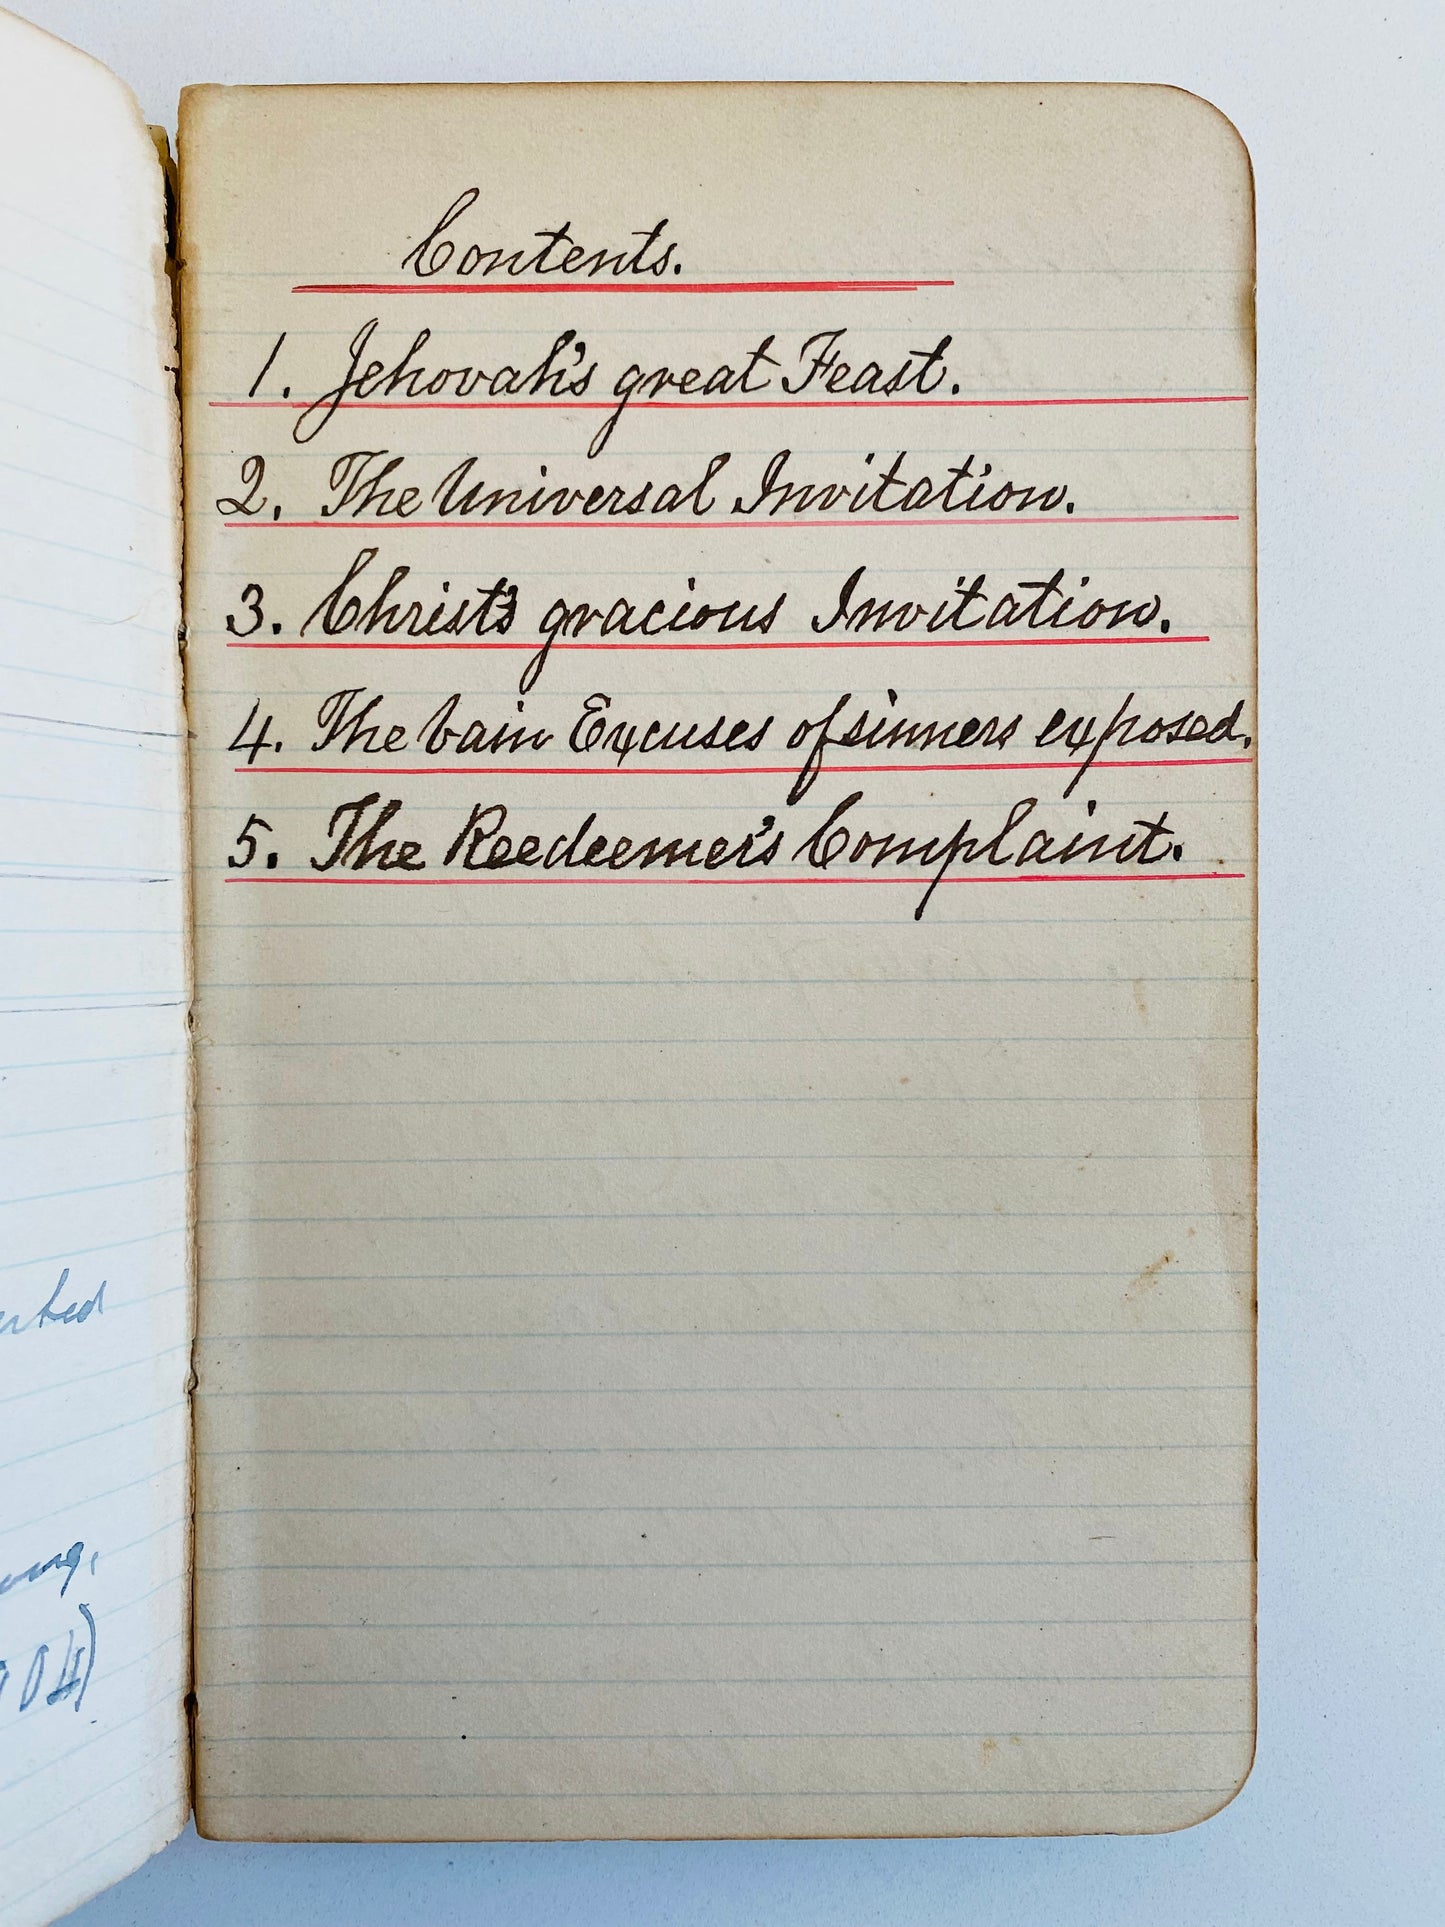 Contents.
1. Jehovah's great Feast.
2. The Universal Invitation.
3. Christ's gracious Invitation.
4. The vain Excuses of sinners exposed.
5. The Reedeemer's Complaint.